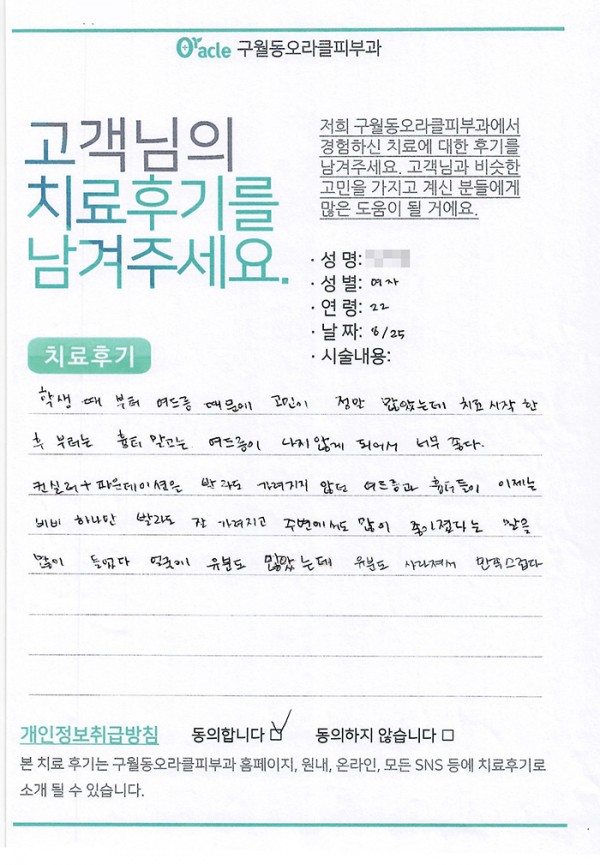 Oracle 구월동오라클피부과
고객님의
치료후기를
남겨주세요.
저희 구월동오라클피부과에서
경험하신 치료에 대한 후기를
남겨주세요. 고객님과 비슷한
고민을 가지고 계신 분들에게
많은 도움이 될 거에요.
· 성 명:
· 성 별: 여자
· 연 령: 22
· 날 짜: 8/25
· 시술내용:
치료후기
학생 때 부터 여드름 때문에 고민이 정말 많았는데 치료 시작 한
후 부터는 흉터 말고는 여드름이 나지않게 되어서 너무 좋다.
컨실러+파운데이션은 발라도 가려지지 않던 여드름과 흉터들이 이제는
비비 하나만 발라도 잘 가려지고 주변에서도 많이 좋아졌다는 말을
많이 들었다 얼굴에 유분도 많았는데 유분도 사라져서 만족스럽다
개인정보취급방침 동의합니다 동의하지 않습니다
본 치료 후기는 구월동오라클피부과 홈페이지, 원내, 온라인, 모든 SNS 등에 치료후기로
소개 될 수 있습니다.